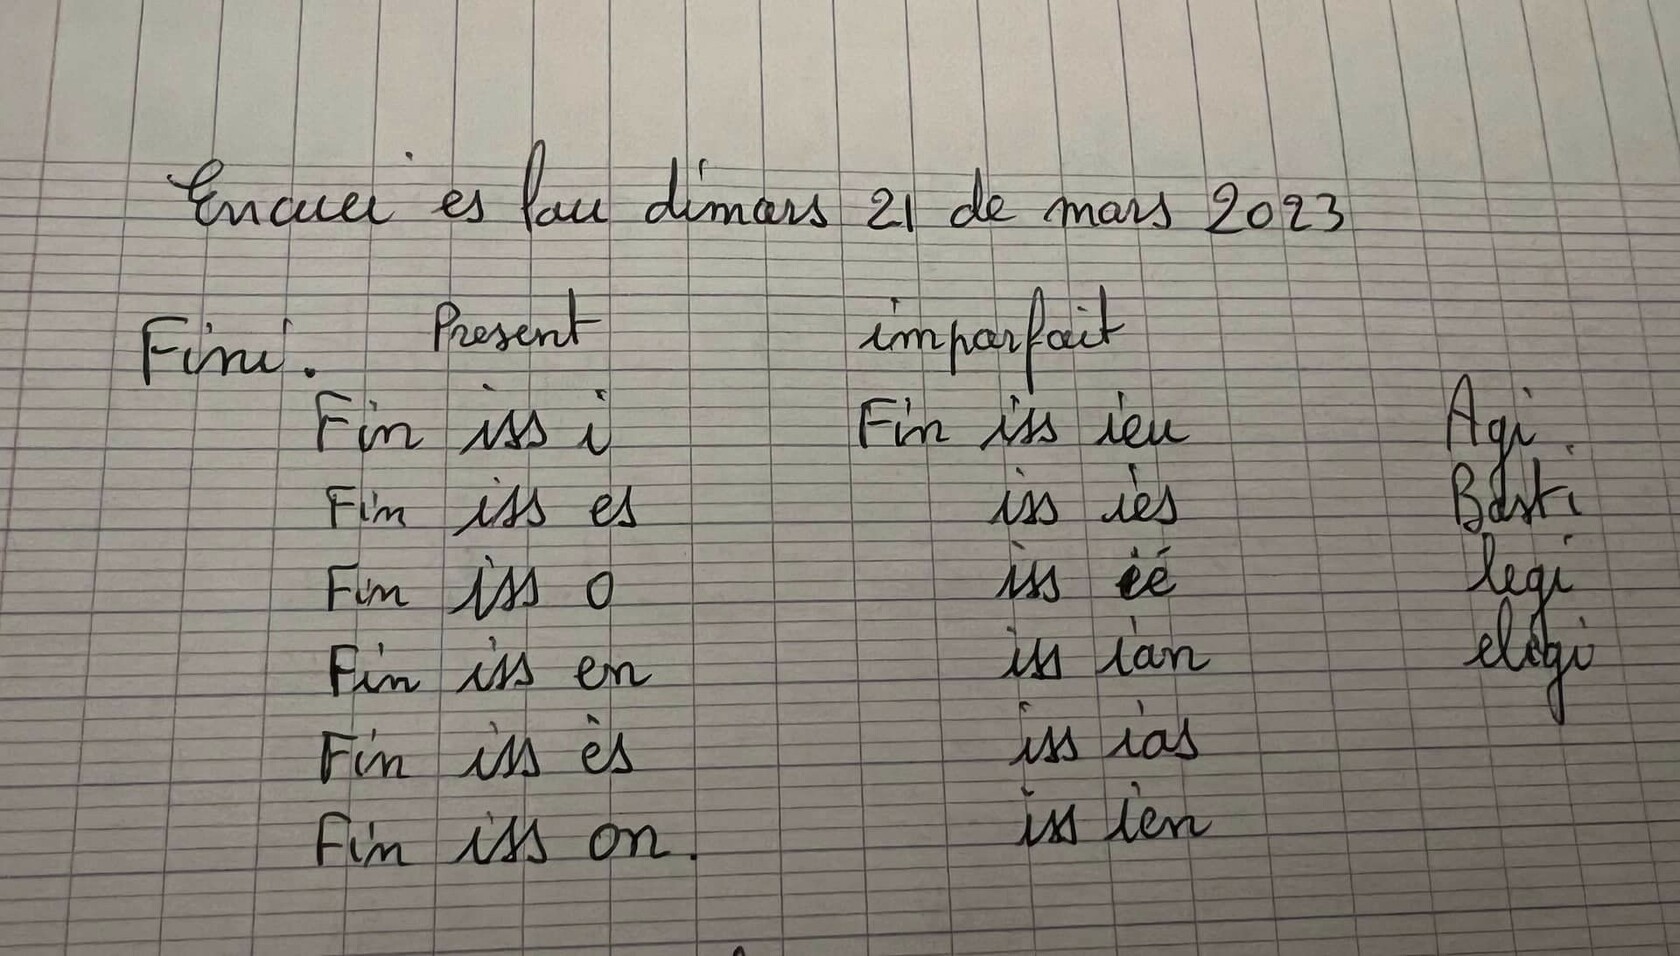 Encuei es lou dimars 21 de mars 2023
Fini. Present imparfait
Fin iss i Fin iss ieu Agi.
Fin iss es iss iès Basti
Fin iss o iss ié legi
Fin iss en iss ian elegi
Fin iss ès iss ias
Fin iss on. iss ien